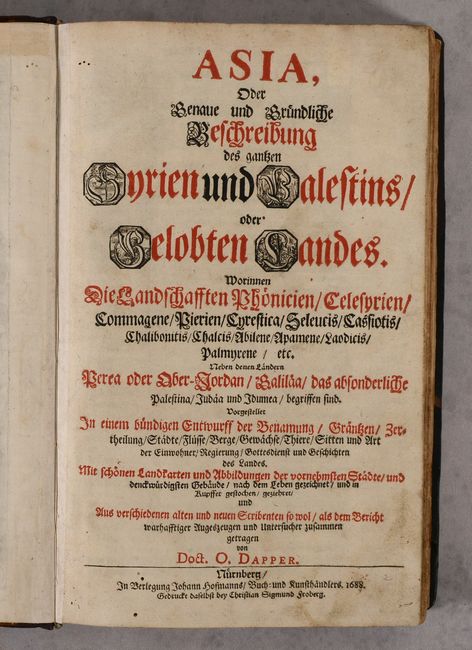 ASIA,
Oder
Genaue und Gründliche
Beschreibung
des gantzen
Syrien und Palestins/
oder
Gelobten Landes.
Worinnen
Die Landschafften Phönicien/ Celesyrien/
Commagene/ Pierien/ Cyrestica/ Seleucis/ Cassiotis/
Chalibonitis/ Chalcis/ Abilene/ Apamene/ Laodicis/
Palmyrene/ etc.
Neben denen Ländern
Perea oder Ober-Jordan/ Galiläa/ das absonderliche
Palestina/ Judäa und Idumea/ begriffen sind.
Vorgestellet
In einem bündigen Entwurff der Benamung/ Gräntzen/ Zer-
theilung/ Städte/ Flüsse/ Berge/ Gewächse/ Thiere/ Sitten und Art
der Einwohner/ Regierung/ Gottesdienst und Geschichten
des Landes.
Mit schönen Landkarten und Abbildungen der vornehmsten Städte/ und
denckwürdigsten Gebäude/ nach dem Leben gezeichnet/ und in
Kupffer gestochen/ geziehret/
und
Aus verschiedenen alten und neuen Scribenten so wol/ als dem Bericht
warhafftiger Augezeugen und Untersucher zusammen
getragen
von
Doct. O. DAPPER.
Nürnberg/
In Verlegung Johann Hofmanns/ Buch- und Kunsthändlers. 1688.
Gedruckt daselbst bey Christian Sigmund Froberg.